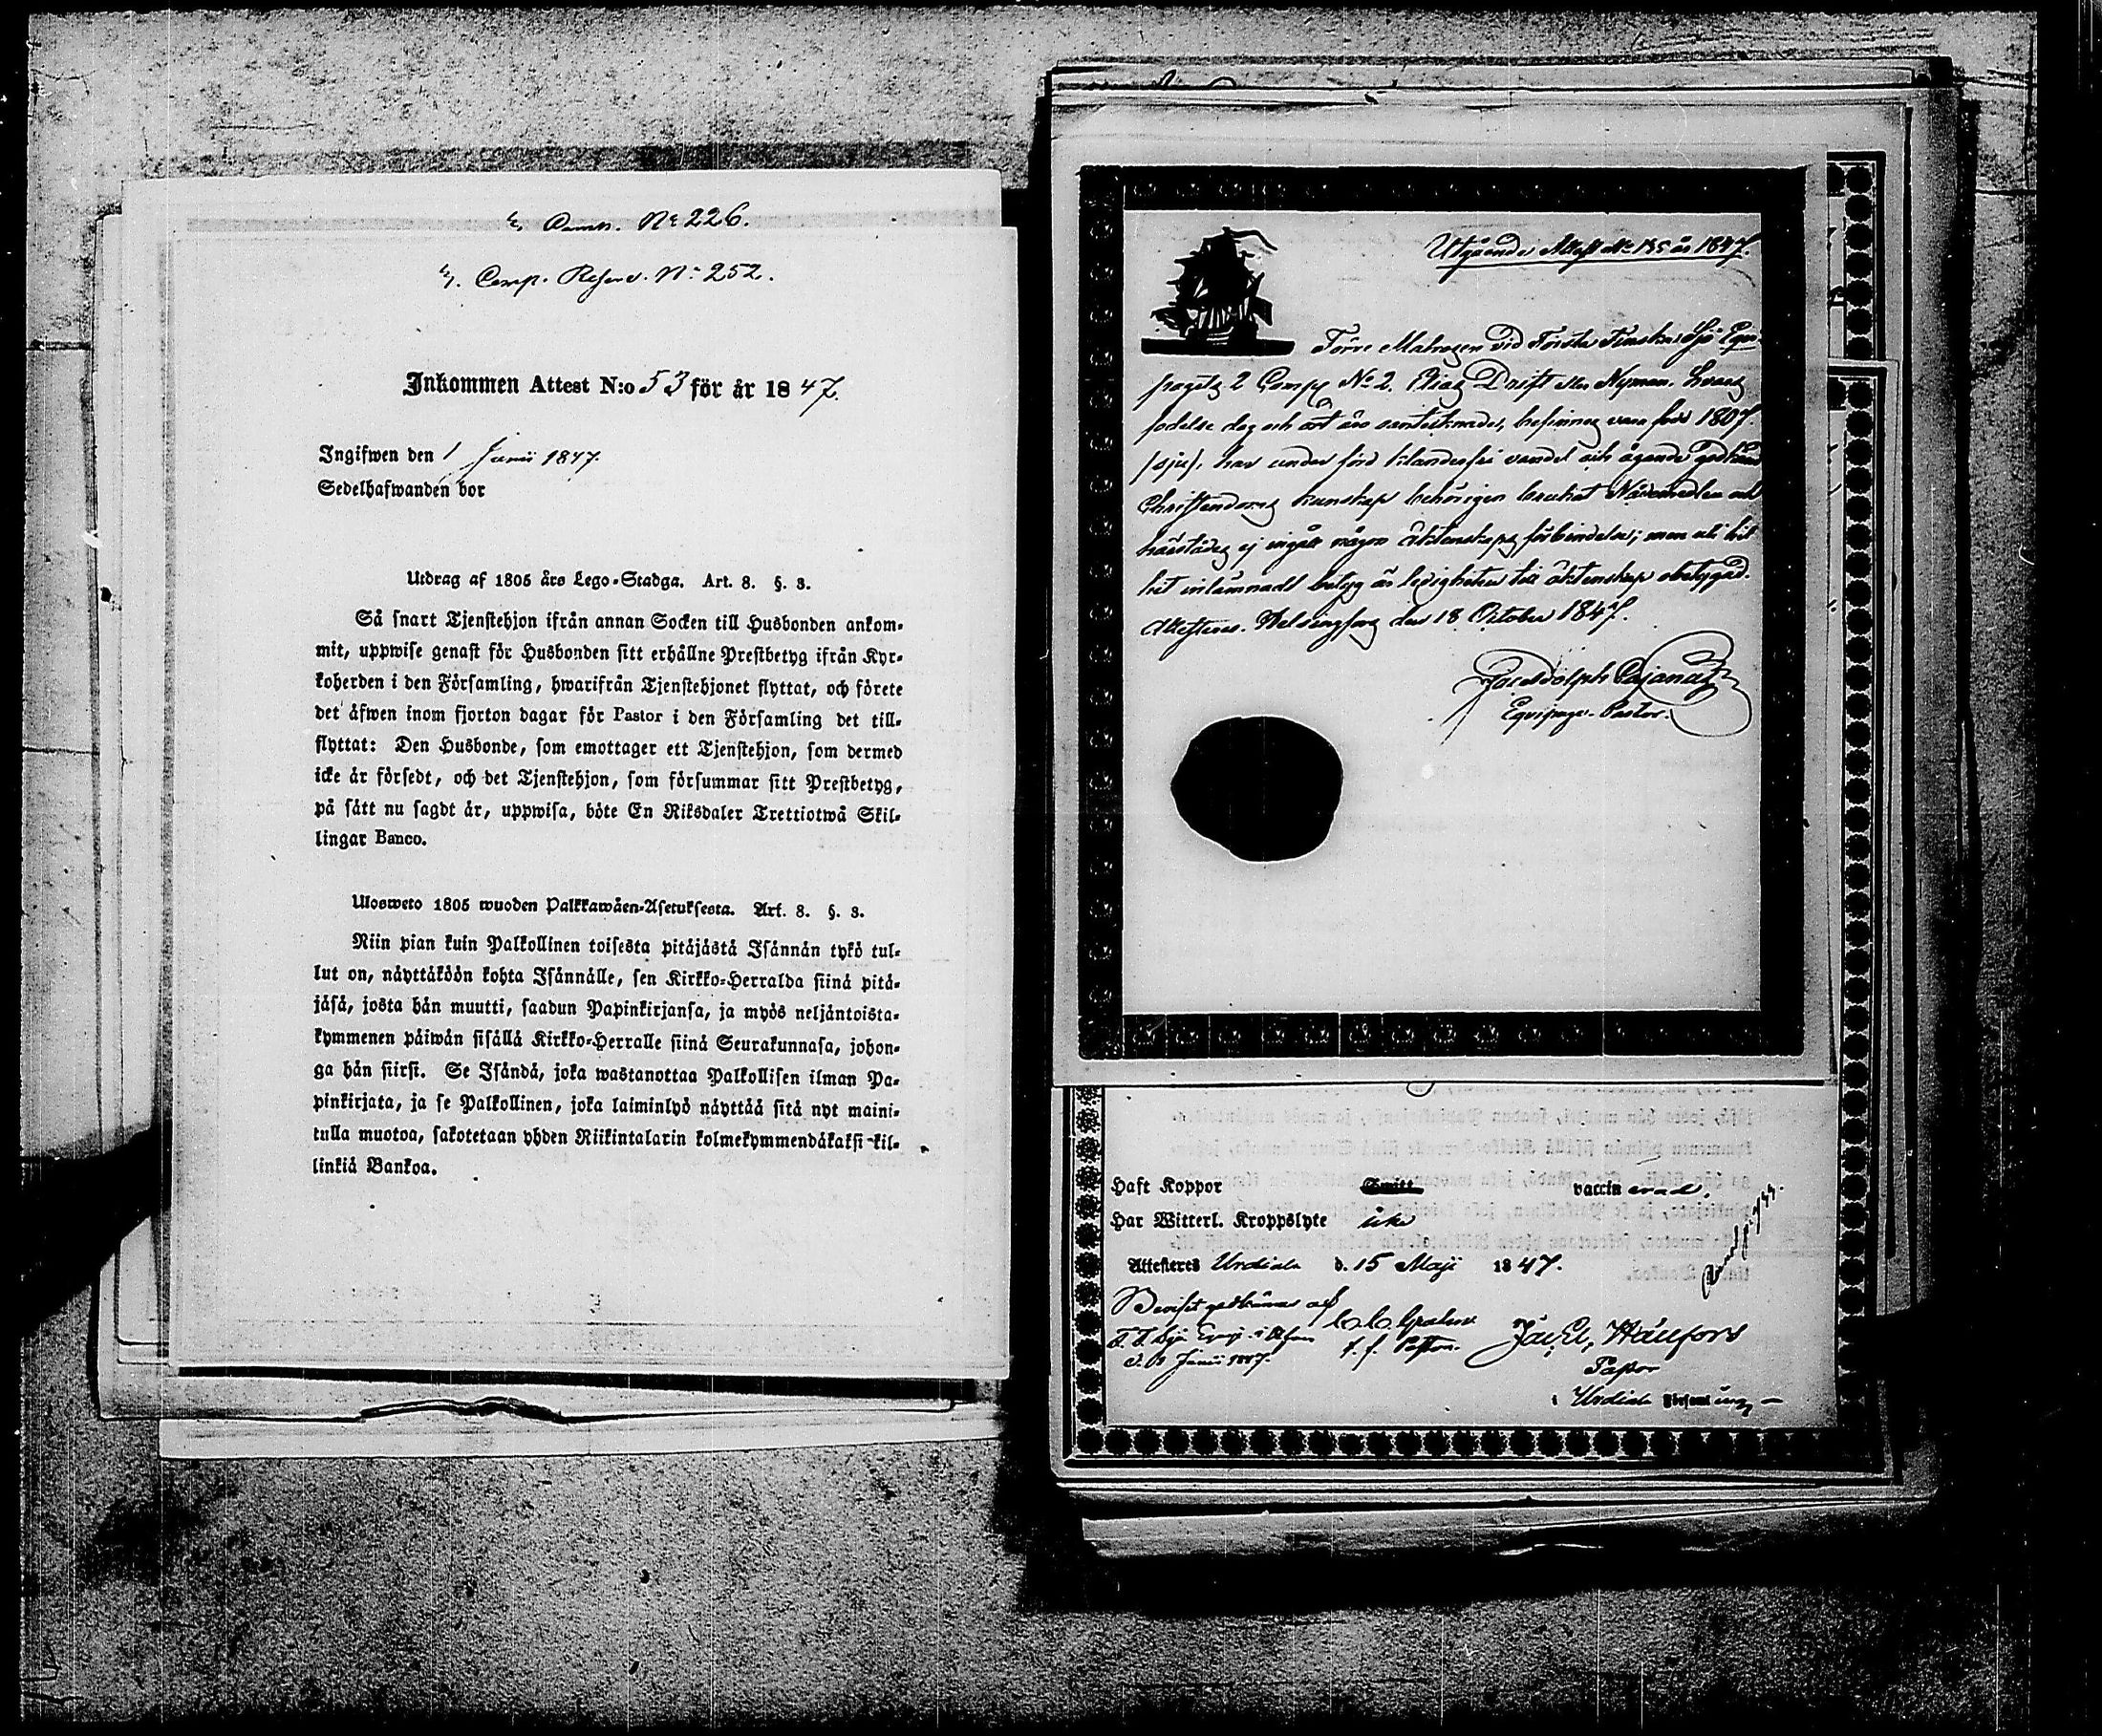 Comp. No 226.
4. Comp. Reserv. No 252.
Inkommen Attest N:o 53 för år 1847.
Ingifwen den 1 Junii 1847.
Sedelhafwanden bor
Utdrag af 1805 års Lego-Stadga. Art. 8. §. 3.
Så snart Tjenstehjon ifrån annan Socken till Husbonden ankom-
mit, uppwise genast för Husbonden sitt erhållne Prestbetyg ifrån Kyr-
koherden i den Församling, hwarifrån Tjenstehjonet flyttat, och förete
det äfwen inom fjorton dagar för Pastor i den Församling det till-
flyttat: Den Husbonde, som emottager ett Tjenstehjon, som dermed
icke är försedt, och det Tjenstehjon, som försummar sitt Prestbetyg,
på sätt nu sagdt är, uppwisa, böte En Riksdaler Trettiotwå Skil-
lingar Banco.
Ulosweto 1805 wuoden Palkkawäen-Asetuksesta. Art. 8. §. 3.
Niin pian kuin Palkollinen toisesta pitäjästä Isännän tykö tul-
lut on, näyttäköön kohta Isännälle, sen Kirkko-Herralda siinä pitä-
jäsä, josta hän muutti, saadun Papinkirjansa, ja myös neljäntoista-
kymmenen päiwän sisällä Kirkko-Herralle siinä Seurakunnasa, johon-
ga hän siirsi. Se Isändä, joka wastanottaa Palkollisen ilman Pa-
pinkirjata, ja se Palkollinen, joka laiminlyö näyttää sitä nyt maini-
tulla muotoa, sakotetaan yhden Riikintalarin kolmekymmendäkaksi kil-
linkiä Bankoa.
Utgående Attest No 135 år 1847.
Förre Matrosen vid Första Finska Sjö Equi-
pagets 2 Comp No 2. Elias Drift eller Nyman, hvars
födelse dag och ort äro oantecknade, befinnes vara född 1807.
har under förd klanderfri vandel och ägande godkänd
Christendoms kunskap behörigen brukat Nådemedlen och
härstädes ej ingått någon äktenskaps förbindelse; men uti hit
inlämnadt betyg är ledigheten till äktenskap obetygad.
Attesteras. Helsingfors den 18 October 1847.
Adolph Pajanus
Equipage-Pastor.
Haft Koppor Smitt vaccinerad.
Har Witterl. Kroppslyte icke
Attesteres Urdiala d. 15 Maji 1847.
Beviset godkännes af
Sjö Equip.
d. Junii 1847.
t. f. Pastor.
Pastor
i Urdiala Församling